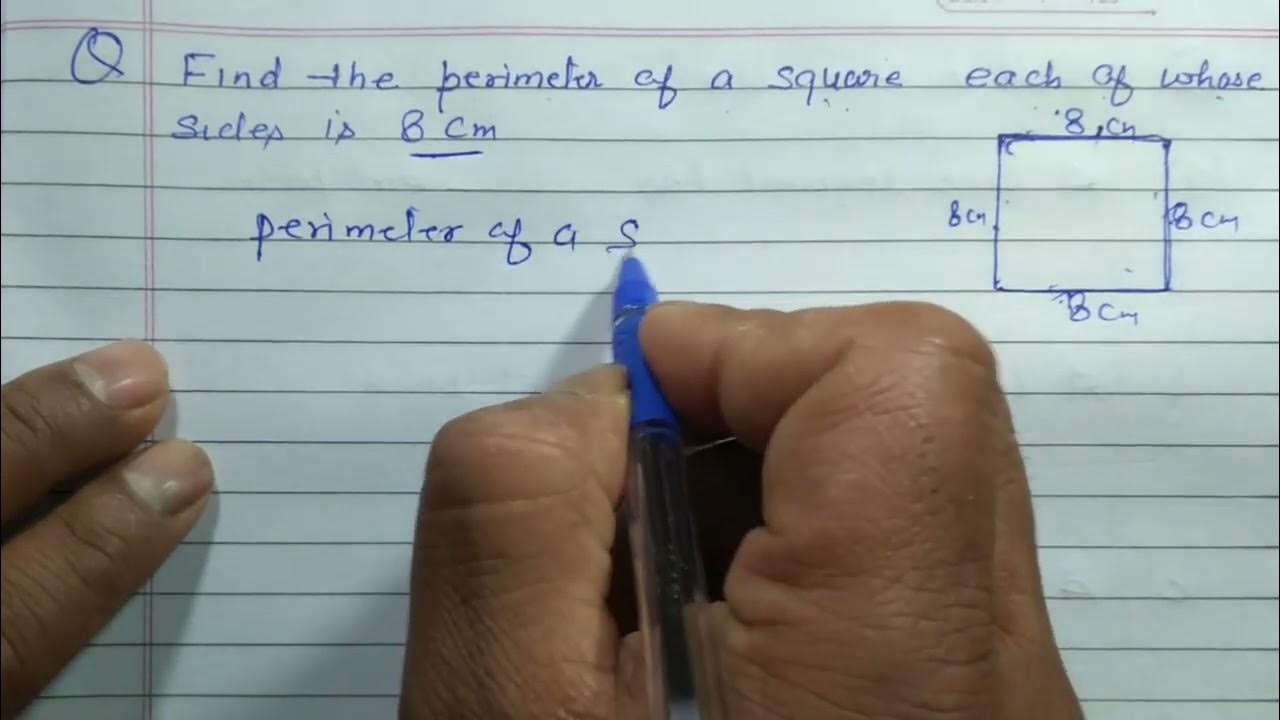 Q Find the perimeter of a square each of whose
sides is 8 cm
8 cm
perimeter of a s
8cm
8 cm
8 cm